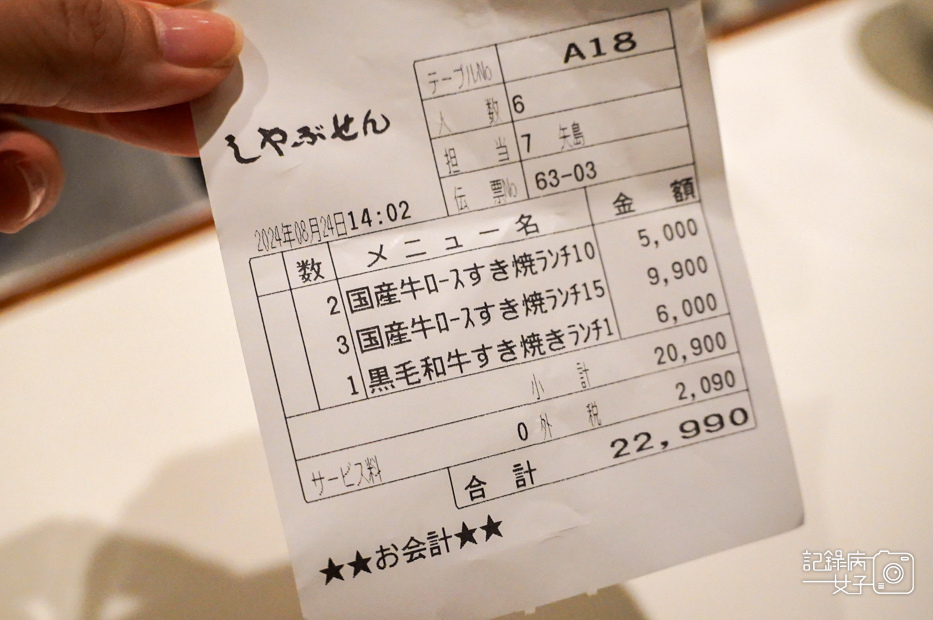 しゃぶせん
テーブルNo A18
人数 6
担当 7 矢島
伝票No 63-03
2024年08月24日14:02
数 メニュー名 金額
2 国産牛ﾛｰｽすき焼ﾗﾝﾁ10 5,000
3 国産牛ﾛｰｽすき焼ﾗﾝﾁ15 9,900
1 黒毛和牛すき焼きﾗﾝﾁ1 6,000
小計 20,900
サービス料 0 外税 2,090
合計 22,990
★★お会計★★
記錄病
女子